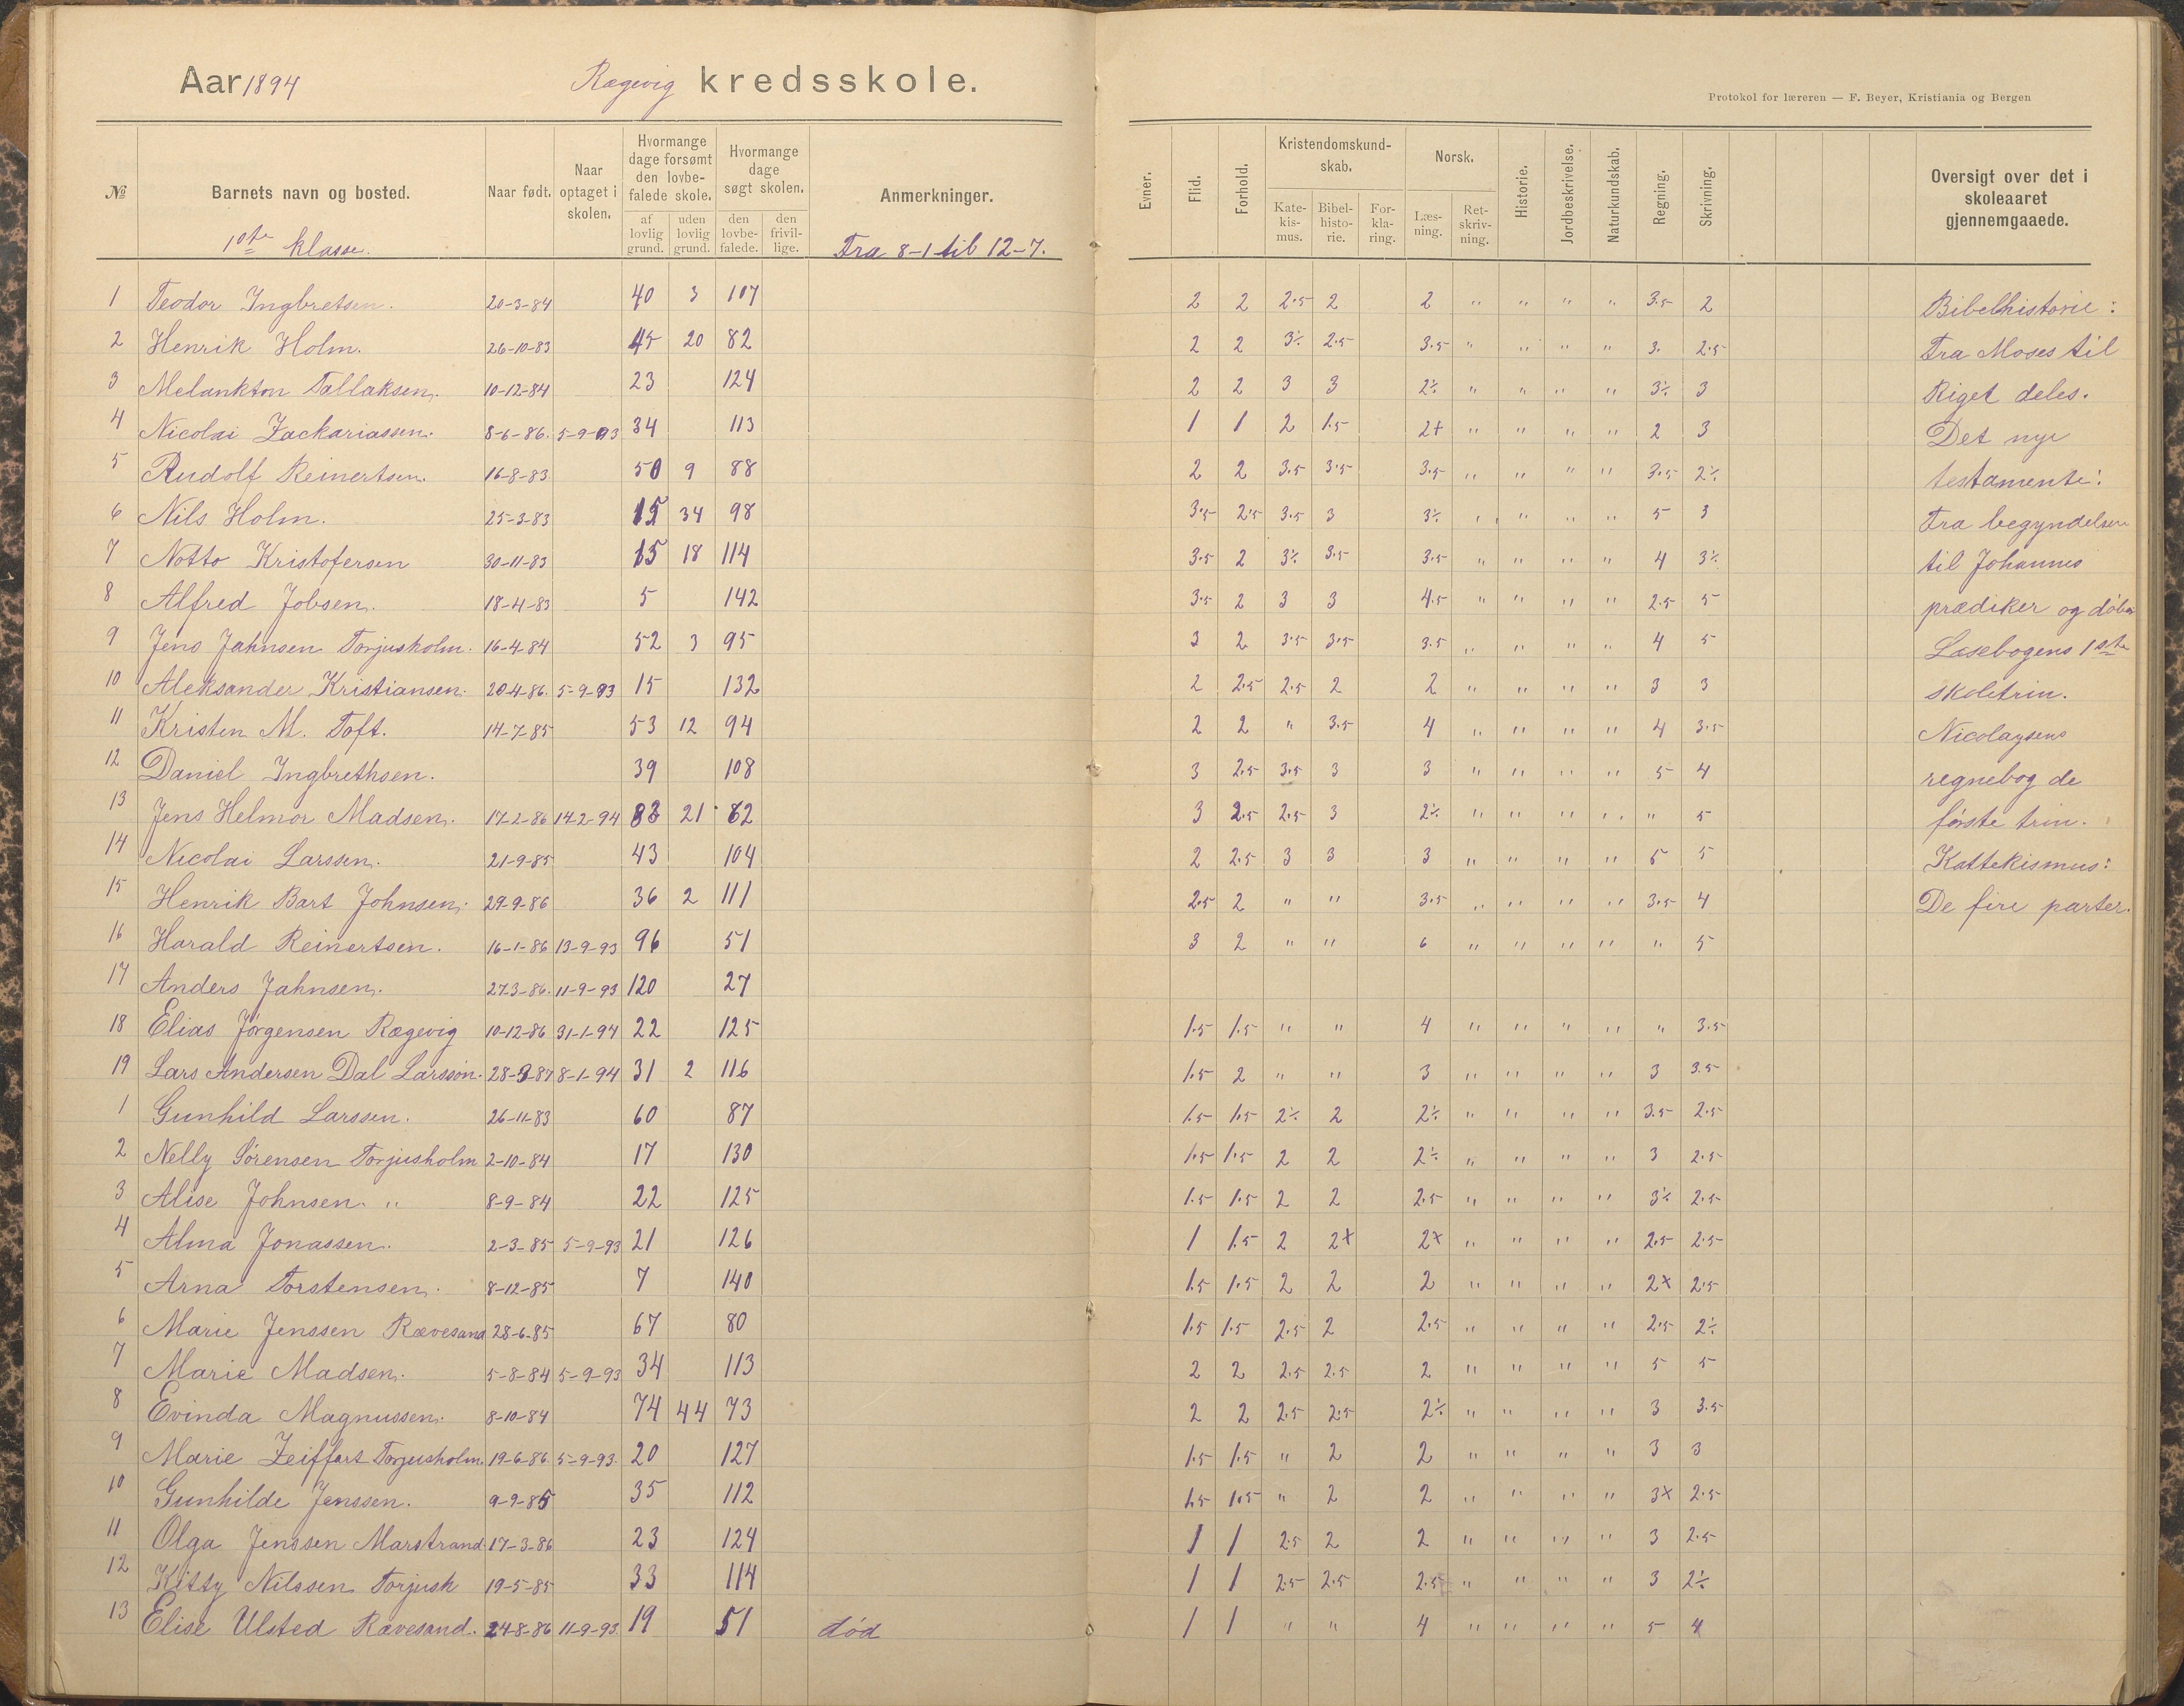 Aar 1894 Rægevig kredsskole.
Protokol for læreren — F. Beyer, Kristiania og Bergen
№ Barnets navn og bosted. Naar født. Naar optaget i skolen. Hvormange dage forsømt den lovbefalede skole. af lovlig grund. uden lovlig grund. Hvormange dage søgt skolen. den lovbefalede. den frivillige. Anmerkninger. Evner. Flid. Forhold. Kristendomskundskab. Katekismus. Bibelhistorie. Forklaring. Norsk. Læsning. Retskrivning. Historie. Jordbeskrivelse. Naturkundskab. Regning. Skrivning. Oversigt over det i skoleaaret gjennemgaaede.
1ste klasse. Fra 8-1 til 12-7.
1 Teodor Ingbretsen. 20-3-84 40 3 107 2 2 2.5 2 2 " " " " 3.5 2 Bibelhistorie:
2 Henrik Holm. 26-10-83 45 20 82 2 2 3÷ 2.5 3.5 " " " " 3. 2.5 Fra Moses til
3 Melankton Tallaksen. 10-12-84 23 124 2 2 3 3 2÷ " " " " 3÷ 3 Riget deles.
4 Nicolai Zackariassen. 8-6-86. 5-9-93 34 113 1 1 2 1.5 2+ " " " " 2 3 Det nye
5 Rudolf Reinertsen. 16-8-83 50 9 88 2 2 3.5 3.5 3.5 " " " " 3.5 2÷ testamente:
6 Nils Holm. 25-3-83 15 34 98 3.5 2.5 3.5 3 3÷ " " " " 5 3 Fra begyndelsen
7 Notto Kristofersen 30-11-83 15 18 114 3.5 2 3÷ 3.5 3.5 " " " " 4 3÷ til Johannes
8 Alfred Jobsen. 18-4-83 5 142 3.5 2 3 3 4.5 " " " " 2.5 5 prædiker og døber
9 Jens Jahnsen Torjusholm. 16-4-84 52 3 95 3 2 3.5 3.5 3.5 " " " " 4 5 Læsebogens 1ste
10 Aleksander Kristiansen. 20-4-86. 5-9-93 15 132 2 2.5 2.5 2 2 " " " " 3 3 skoletrin.
11 Kristen M. Toft. 14-7-85 53 12 94 2 2 " 3.5 4 " " " " 4 3.5 Nicolaysens
12 Daniel Ingbrethsen. 39 108 3 2.5 3.5 3 3 " " " " 5 4 regnebog de
13 Jens Helmor Madsen. 17-2-86 14-2-94 83 21 62 3 2.5 2.5 3 2÷ " " " " " 5 første trin.
14 Nicolai Larssen. 21-9-85 43 104 2 2.5 3 3 3 " " " " 5 5 Kattekismus:
15 Henrik Bart Johnsen. 29-9-86 36 2 111 2.5 2 " " 3.5 " " " " 3.5 4 De fire parter.
16 Harald Reinertsen. 16-1-86 13-9-93 96 51 3 2 " " 6 " " " " " 5
17 Anders Jahnsen. 27-3-86. 11-9-93 120 27
18 Elias Jørgensen Rægevig 10-12-86 31-1-94 22 125 1.5 1.5 " " 4 " " " " " 3.5
19 Lars Andersen Dal Larsson. 28-9-87 8-1-94 31 2 116 1.5 2 " " 3 " " " " 3 3.5
1 Gunhild Larssen. 26-11-83 60 87 1.5 1.5 2÷ 2 2÷ " " " " 3.5 2.5
2 Nelly Sørensen Torjusholm 2-10-84 17 130 1.5 1.5 2 2 2÷ " " " " 3 2.5
3 Alise Johnsen. " 8-9-84 22 125 1.5 1.5 2 2 2.5 " " " " 3÷ 2.5
4 Alma Jonassen. 2-3-85 5-9-93 21 126 1 1.5 2 2+ 2+ " " " " 2.5 2.5
5 Arna Torstensen. 8-12-85 7 140 1.5 1.5 2 2 2 " " " " 2+ 2.5
6 Marie Jenssen Rævesand 28-6-85 67 80 1.5 1.5 2.5 2 2.5 " " " " 2.5 2÷
7 Marie Madsen. 5-8-84 5-9-93 34 113 2 2 2.5 2.5 2 " " " " 5 5
8 Evinda Magnussen. 8-10-84 74 44 73 2 2 2.5 2.5 2÷ " " " " 3 3.5
9 Marie Zeiffert Torjusholm. 19-6-86 5-9-93. 20 127 1.5 1.5 " 2 2 " " " " 3 3
10 Gunhilde Jenssen. 9-9-85 35 112 1.5 1.5 " 2 2 " " " " 3+ 2.5
11 Olga Jenssen Marstrand. 17-3-86 23 124 1 1 2.5 2 2 " " " " 3 2.5
12 Kitty Nilssen Torjush 19-5-85 33 114 1 1 2.5 2.5 2.5 " " " " 3 2÷
13 Elise Ulsted Rævesand. 24-8-86 11-9-93. 19 51 død 1 1 " " 4 " " " " 5 4